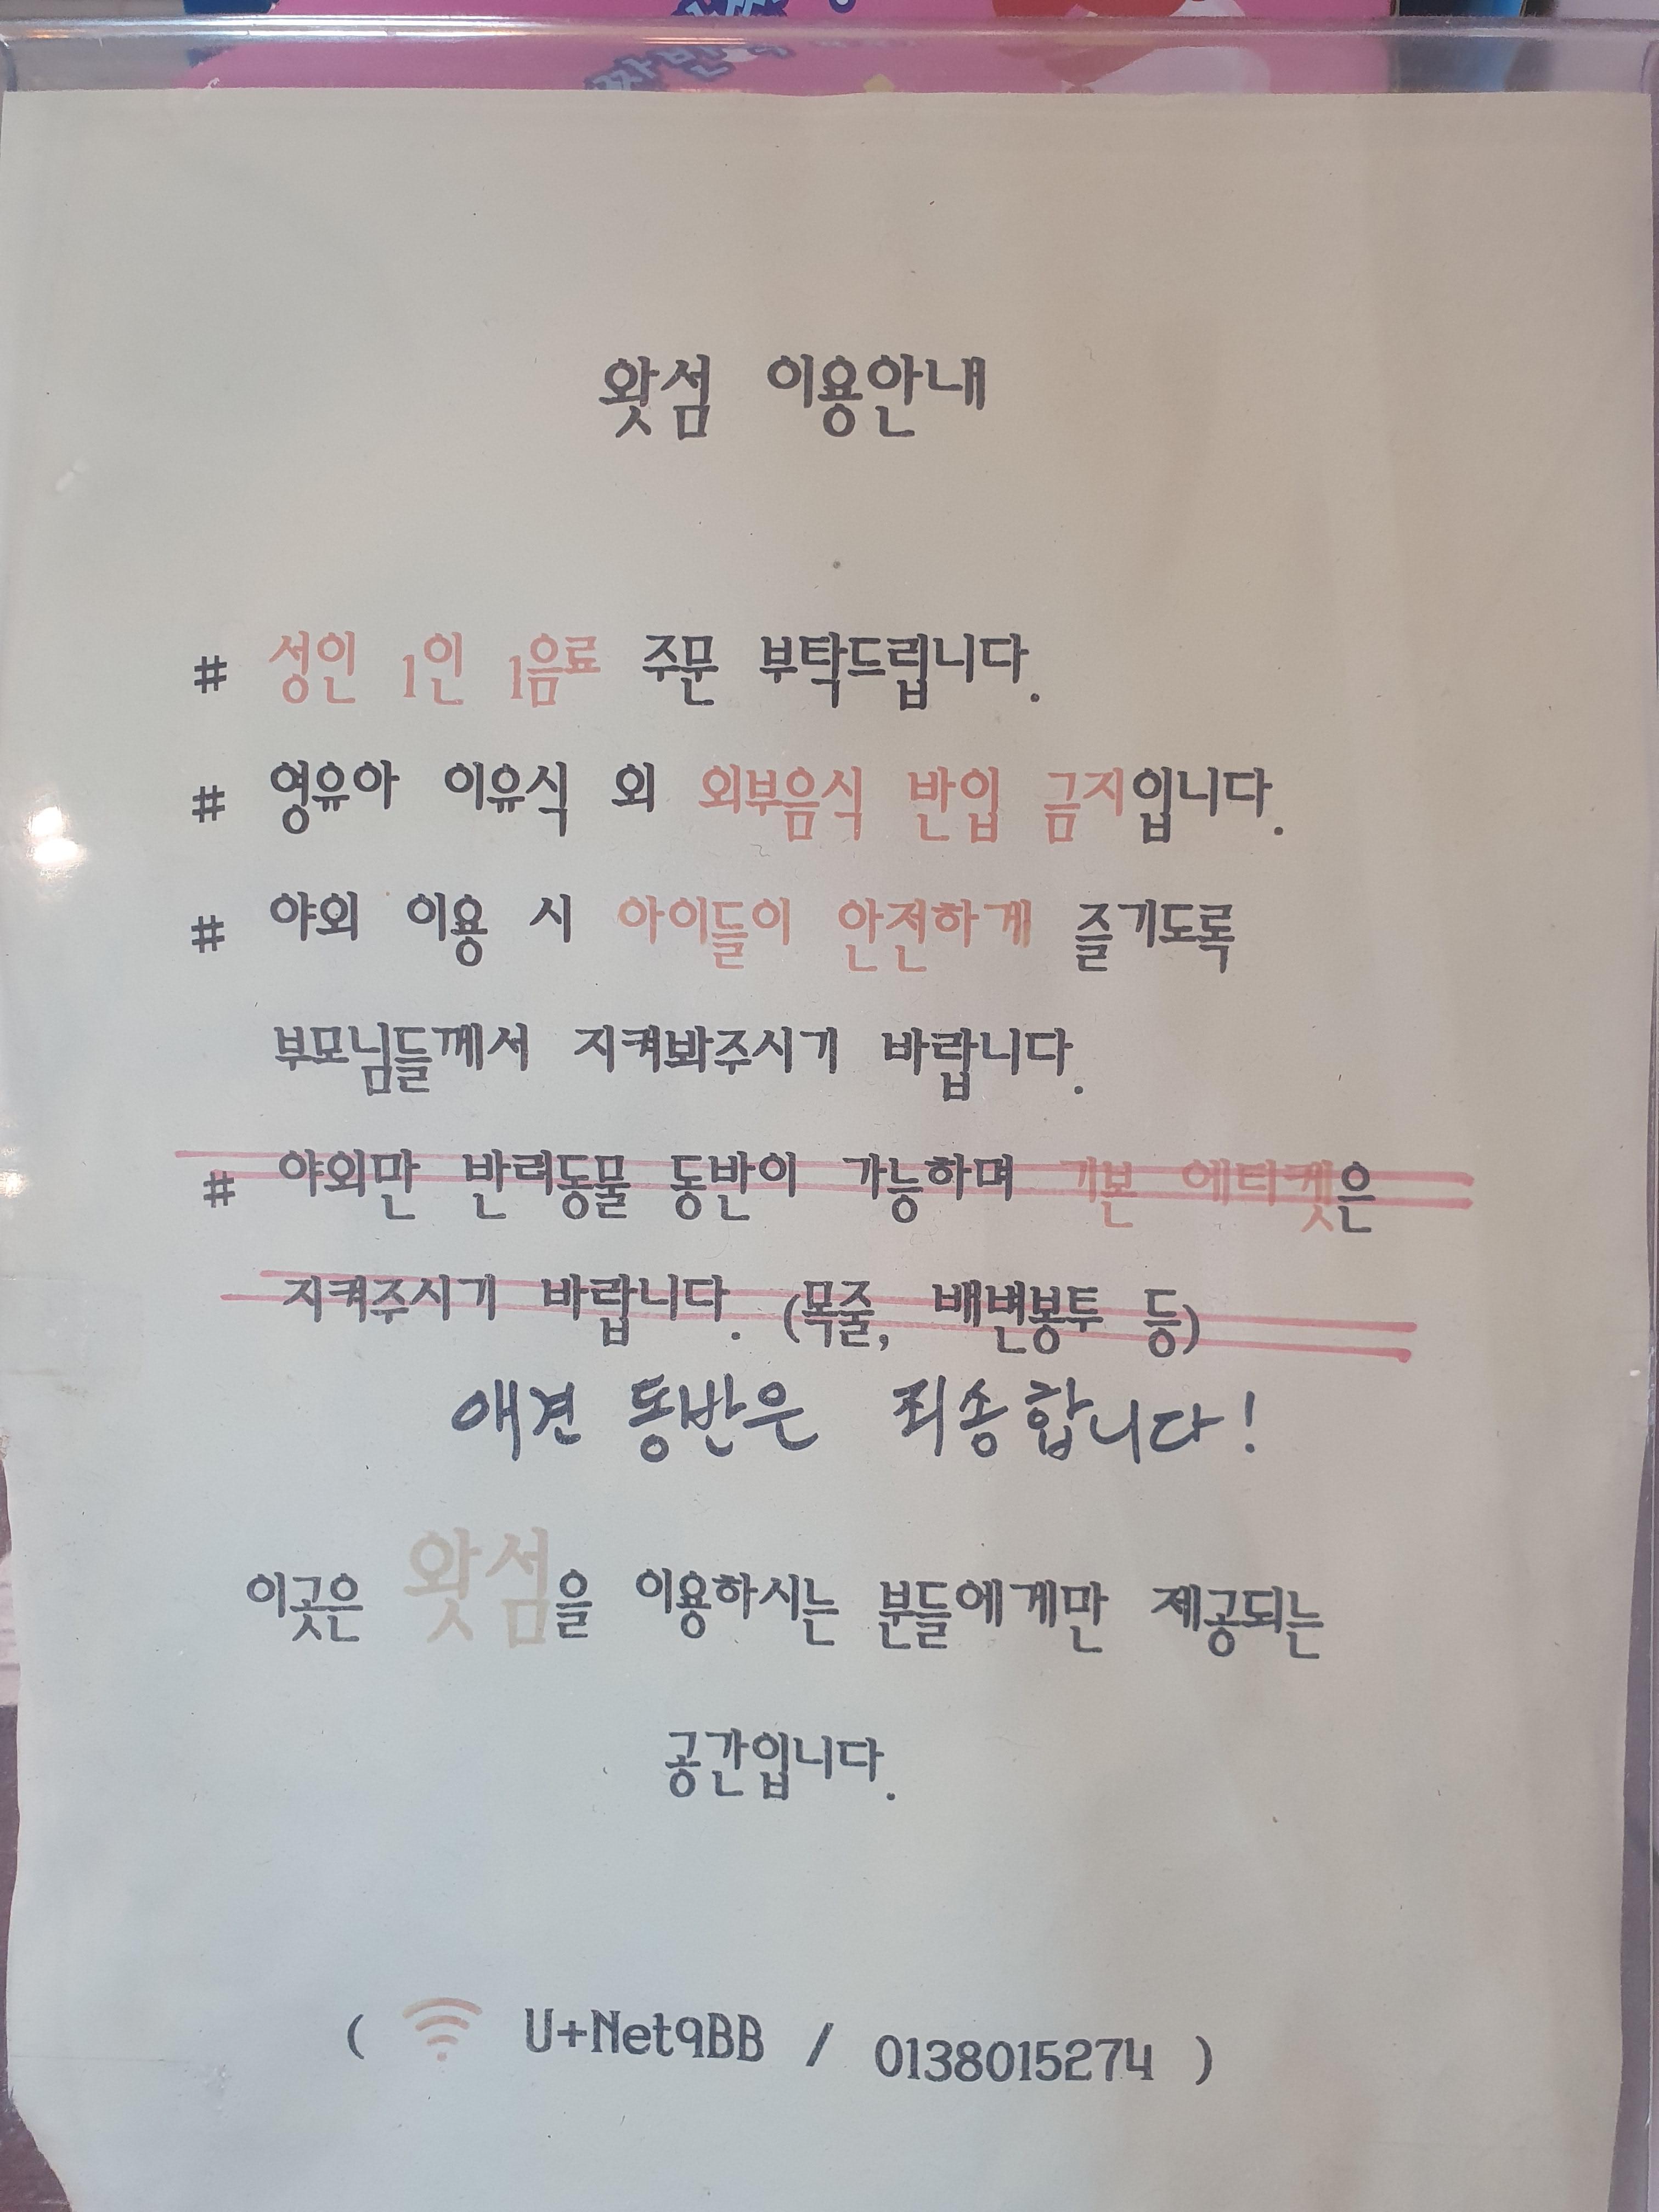 왓섬 이용안내
# 성인 1인 1음료 주문 부탁드립니다.
# 영유아 이유식 외 외부음식 반입 금지입니다.
# 야외 이용 시 아이들이 안전하게 즐기도록
부모님들께서 지켜봐주시기 바랍니다.
# 야외만 반려동물 동반이 가능하며 기본 에티켓은
지켜주시기 바랍니다. (목줄, 배변봉투 등)
애견 동반은 죄송합니다!
이곳은 왓섬을 이용하시는 분들에게만 제공되는
공간입니다.
( U+Net9BB / 0138015274 )